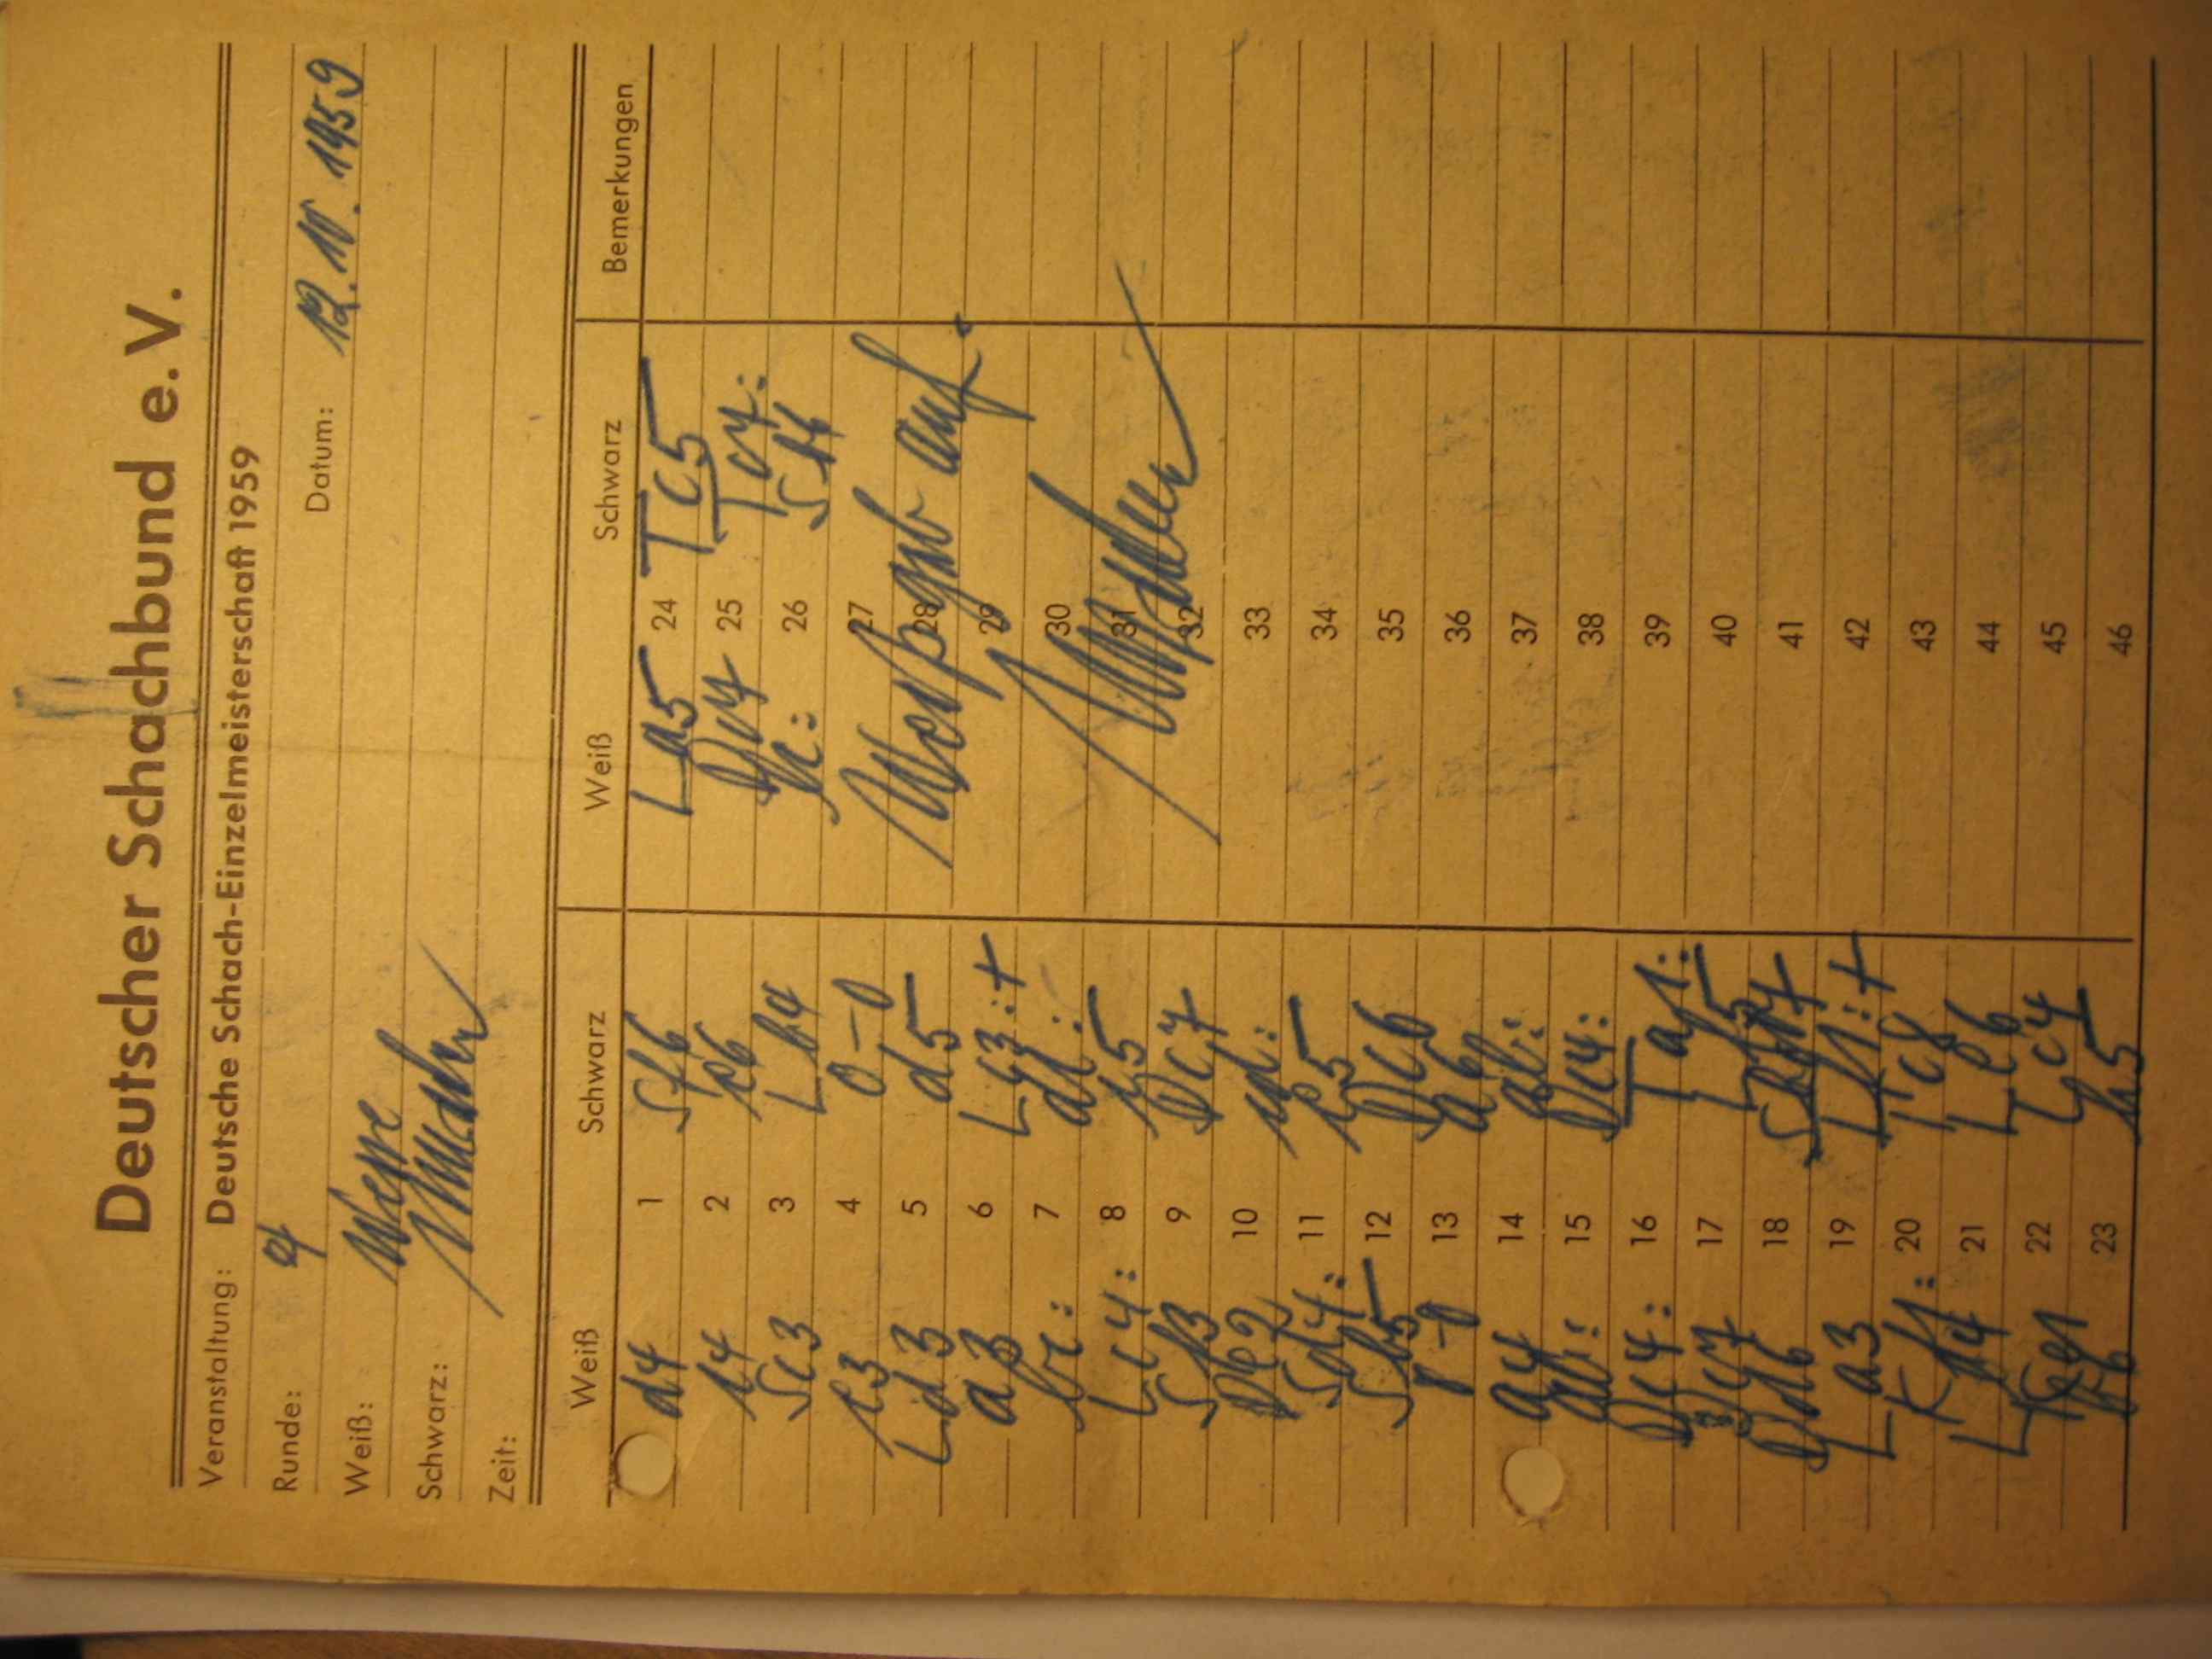 Deutscher Schachbund e.V.
Veranstaltung: Deutsche Schach-Einzelmeisterschaft 1959
Runde: Datum: 12.10.1959
Weiß:
Schwarz:
Zeit:
Weiß Schwarz Weiß Schwarz Bemerkungen
d4 1 Sf6 La5 24 Tc5
c4 2 e6 25 Tc7:
Sc3 3 Lb4 26
e3 4 0-0 27
Ld3 5 d5 28
a3 6 Lc3:+ 29
bc: 7 dc: 30
Lc4: 8 c5 31
Sf3 9 Dc7 32
De2 10 cd: 33
Sd4: 11 e5 34
Sb5 12 Dc6 35
0-0 13 a6 36
a4 14 ab: 37
ab: 15 Dc4: 38
Dc4: 16 Ta1: 39
Dc7 17 Lf5 40
Dd6 18 41
La3 19 Lf1:+ 42
Kf1: 20 Tc8 43
Lb4 21 Le6 44
Ke1 22 Tc4 45
b6 23 h5 46
Weiß gab auf.